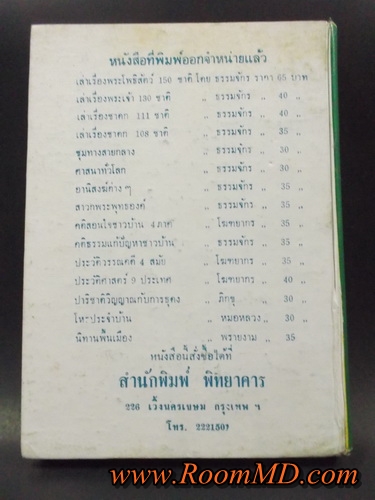 หนังสือที่พิมพ์ออกจำหน่ายแล้ว
เล่าเรื่องพระโพธิสัตว์ 150 ชาติ โดย ธรรมจักร ราคา 65 บาท
เล่าเรื่องพระเจ้า 130 ชาติ „ ธรรมจักร „ 40 „
เล่าเรื่องชาดก 111 ชาติ „ ธรรมจักร „ 40 „
เล่าเรื่องชาดก 108 ชาติ „ ธรรมจักร „ 35 „
ชุมทางสายกลาง „ ธรรมจักร „ 30 „
ศาสนาทั่วโลก „ ธรรมจักร „ 30 „
ยานิสงฆ์ต่าง ๆ „ ธรรมจักร „ 35 „
สาวกพระพุทธองค์ „ ธรรมจักร „ 35 „
คติสอนใจชาวบ้าน 4 ภาค „ โฆฑยากร „ 35 „
คติธรรมแก้ปัญหาชาวบ้าน „ ธรรมจักร „ 35 „
ประวัติวรรณคดี 4 สมัย „ โฆฑยากร „ 35 „
ประวัติศาสตร์ 9 ประเทศ „ โฆฑยากร „ 40 „
ปาริชาติวิญญาณกับการธุดง „ ภิกขุ „ 30 „
โหรประจำบ้าน „ หมอหลวง „ 30 „
นิทานพื้นเมือง „ พรายงาม „ 35 „
หนังสือนี้สั่งซื้อได้ที่
สำนักพิมพ์ พิทยาคาร
226 เวิ้งนครเขษม กรุงเทพ ฯ
โทร.
www.RoomMD.com